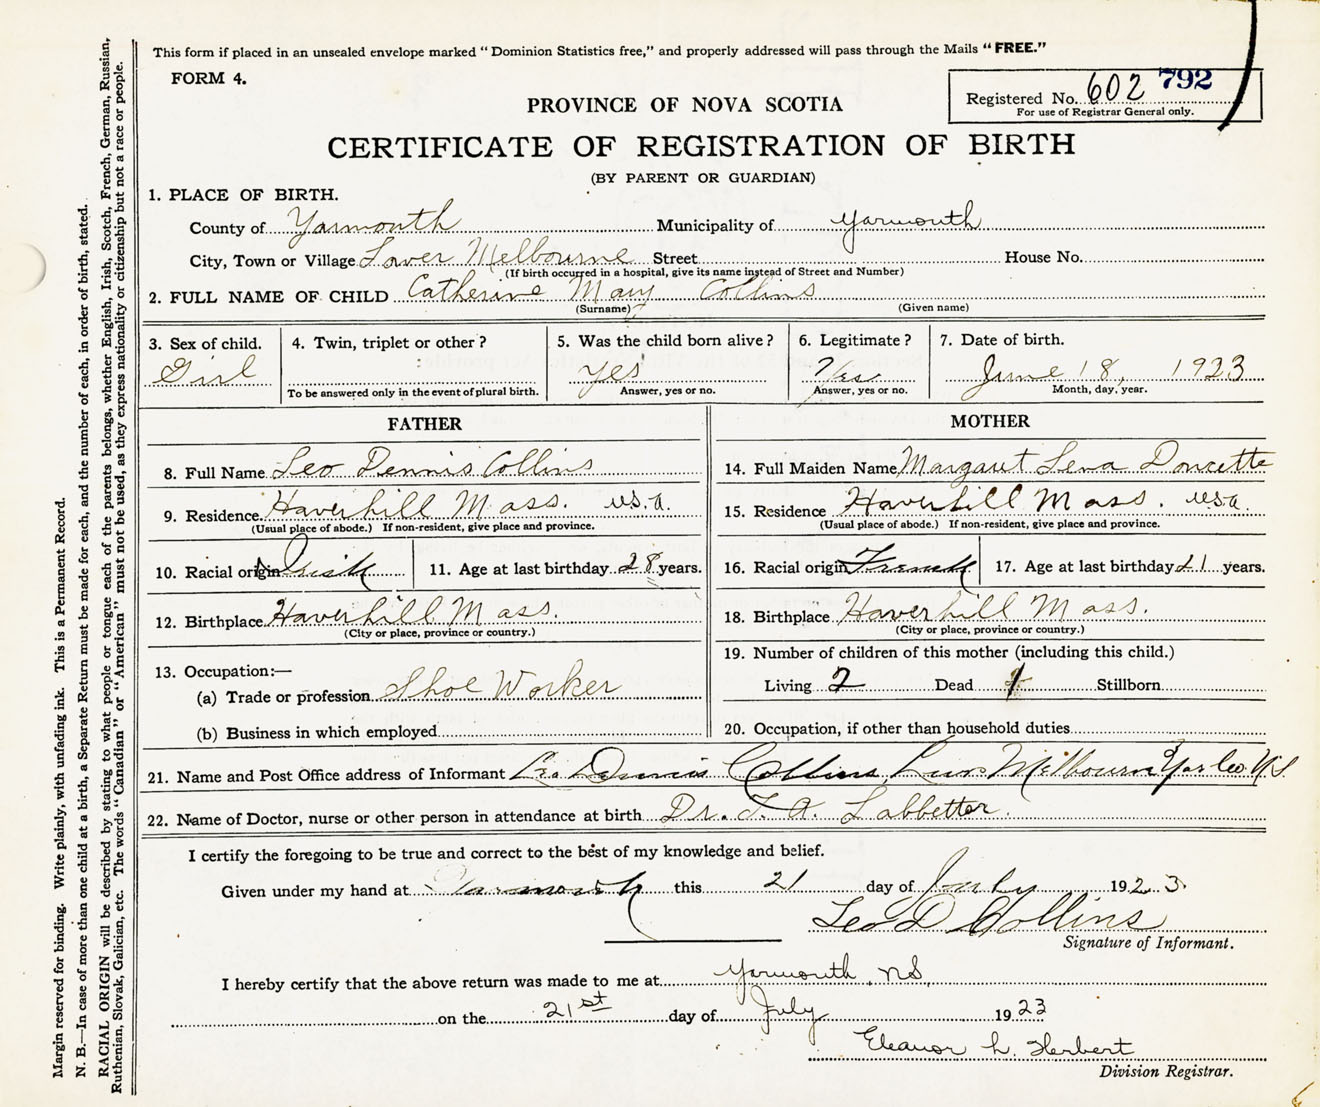 This form if placed in an unsealed envelope marked "Dominion Statistics free," and properly addressed will pass through the Mails "FREE."
FORM 4.
Registered No. 602 792
For use of Registrar General only.
PROVINCE OF NOVA SCOTIA
CERTIFICATE OF REGISTRATION OF BIRTH
(BY PARENT OR GUARDIAN)
1. PLACE OF BIRTH.
County of Yarmouth Municipality of Yarmouth
City, Town or Village Lower Melbourne Street House No.
(If birth occurred in a hospital, give its name instead of Street and Number)
2. FULL NAME OF CHILD Catherine Mary Collins
(Surname) (Given name)
3. Sex of child. 4. Twin, triplet or other? 5. Was the child born alive? 6. Legitimate? 7. Date of birth.
Girl yes Yes June 18, 1923
To be answered only in the event of plural birth. Answer, yes or no. Answer, yes or no. Month, day, year.
FATHER MOTHER
8. Full Name Leo Dennis Collins 14. Full Maiden Name Margaret Lena Doucette
9. Residence Haverhill Mass. U.S.A. 15. Residence Haverhill Mass. U.S.A.
(Usual place of abode.) If non-resident, give place and province. (Usual place of abode.) If non-resident, give place and province.
10. Racial origin Irish 11. Age at last birthday 28 years. 16. Racial origin French 17. Age at last birthday 21 years.
12. Birthplace Haverhill Mass. 18. Birthplace Haverhill Mass.
(City or place, province or country.) (City or place, province or country.)
13. Occupation:— 19. Number of children of this mother (including this child.)
(a) Trade or profession Shoe Worker Living 2 Dead 1 Stillborn
(b) Business in which employed 20. Occupation, if other than household duties
21. Name and Post Office address of Informant Leo Dennis Collins, Melbourne Yar Co N.S
22. Name of Doctor, nurse or other person in attendance at birth Dr. T. A. Labbetter.
I certify the foregoing to be true and correct to the best of my knowledge and belief.
Given under my hand at Yarmouth this 21 day of July 1923
Leo D Collins
Signature of Informant.
I hereby certify that the above return was made to me at Yarmouth, NS
on the 21st day of July 1923
Eleanor L. Herbert
Division Registrar.
Margin reserved for binding. Write plainly, with unfading ink. This is a Permanent Record.
N. B.—In case of more than one child at a birth, a Separate Return must be made for each, and the number of each, in order of birth, stated.
RACIAL ORIGIN will be described by stating to what people or tongue each of the parents belongs, whether English, Irish, Scotch, French, German, Russian,
Ruthenian, Slovak, Galician, etc. The words "Canadian" or "American" must not be used, as they express nationality or citizenship but not a race or people.